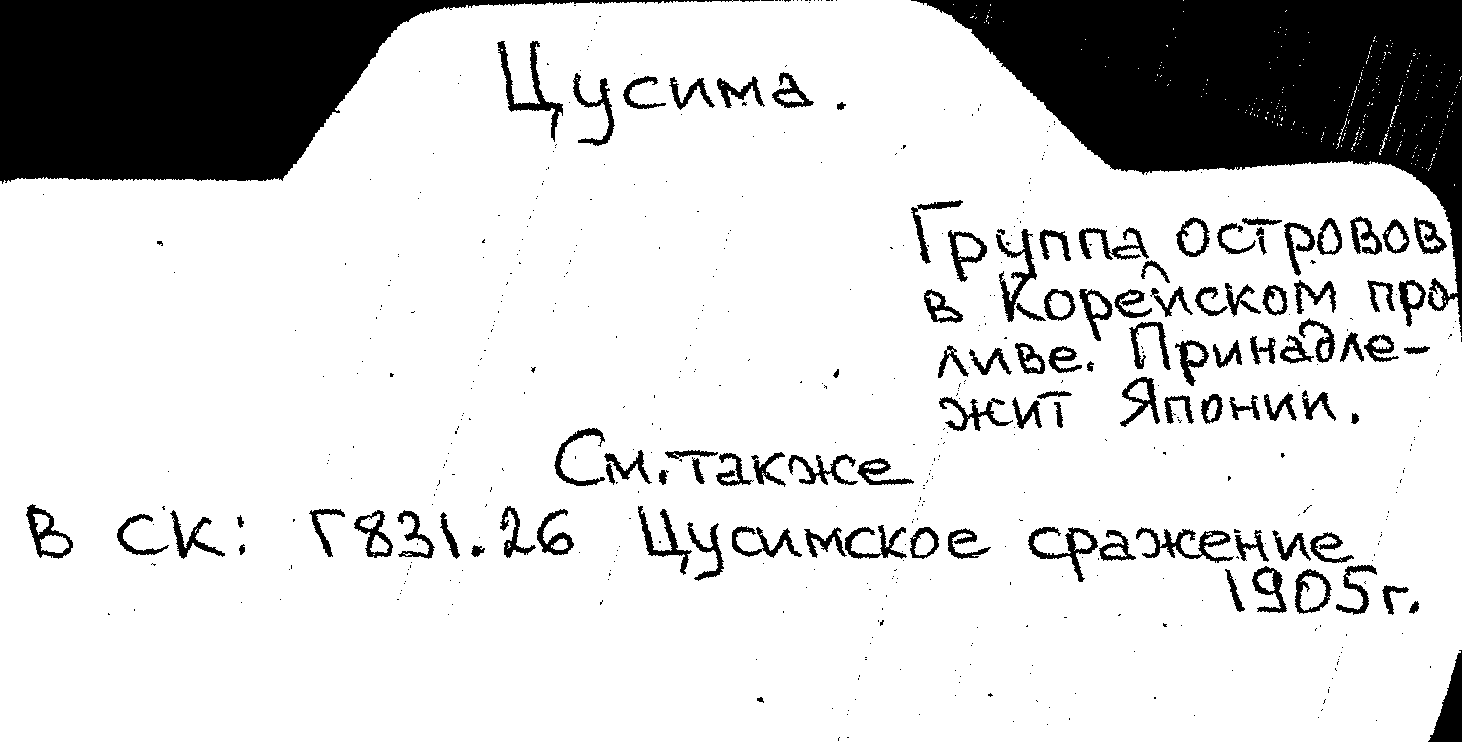 Цусима.
Группа островов
в Корейском про-
ливе. Принадле-
жит Японии.
См. также
В СК: Г831.26 Цусимское сражение
1905г.